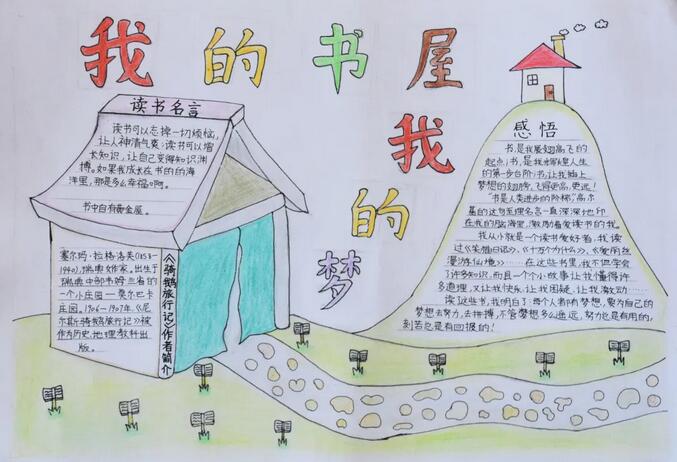 我的书屋
我的梦
读书名言
读书可以忘掉一切烦恼,
让人神清气爽;读书可以增
长知识,让自己变得知识渊
博。如果我成长在书的的海
洋里,那是多么幸福啊。
书中自有黄金屋。
塞尔玛·拉格洛芙(1858-
1940),瑞典女作家。出生于
瑞典中部韦姆兰省的
一个小庄园——莫尔巴卡
庄园。1906-1907年,《尼
尔斯骑鹅旅行记》被
作为历史,地理教科出
版。
《骑鹅旅行记》作者简介
感悟
书,是我展翅高飞的
起点;书,是我辉煌人生
的第一步台阶;书,让我插上
梦想的翅膀,飞得更高,更远!
"书是人类进步的阶梯,"高尔
基的这句至理名言一直深深地印
在我的脑海里,激励着爱读书的我。
我从小就是一个读书爱好者,我读
过《笑猫日记》、《十万个为什么》、《爱丽丝
漫游仙境》……在这些书里,我不但学会
了许多知识,而且一个个小故事让我懂得许
多道理,又让我快乐,让我困疑,让我激动……
读这些书,我明白了:每个人都有梦想,要为自己的
梦想去努力,去拼搏,不管梦想多么遥远,努力也是有用的,
刻苦也是有回报的!